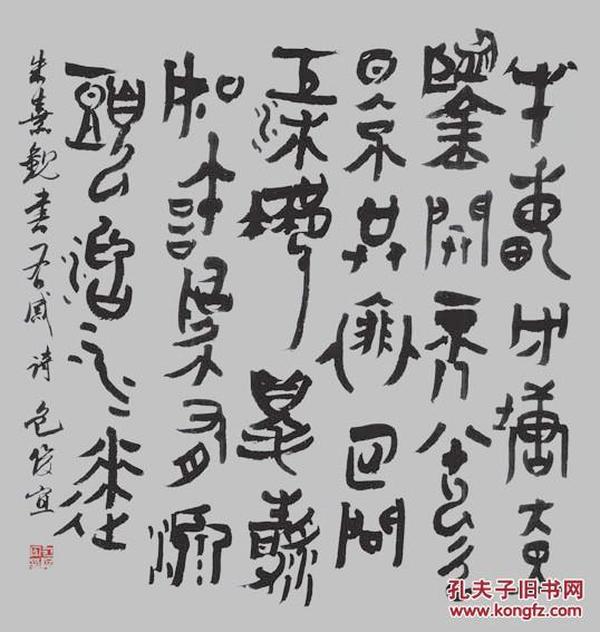 半畝方塘一
鑒開天光雲
景共徘徊問
渠那得清
如許為有源
頭活水來
朱熹觀書有感诗 包俊宜
孔夫子旧书网
www.kongfz.com